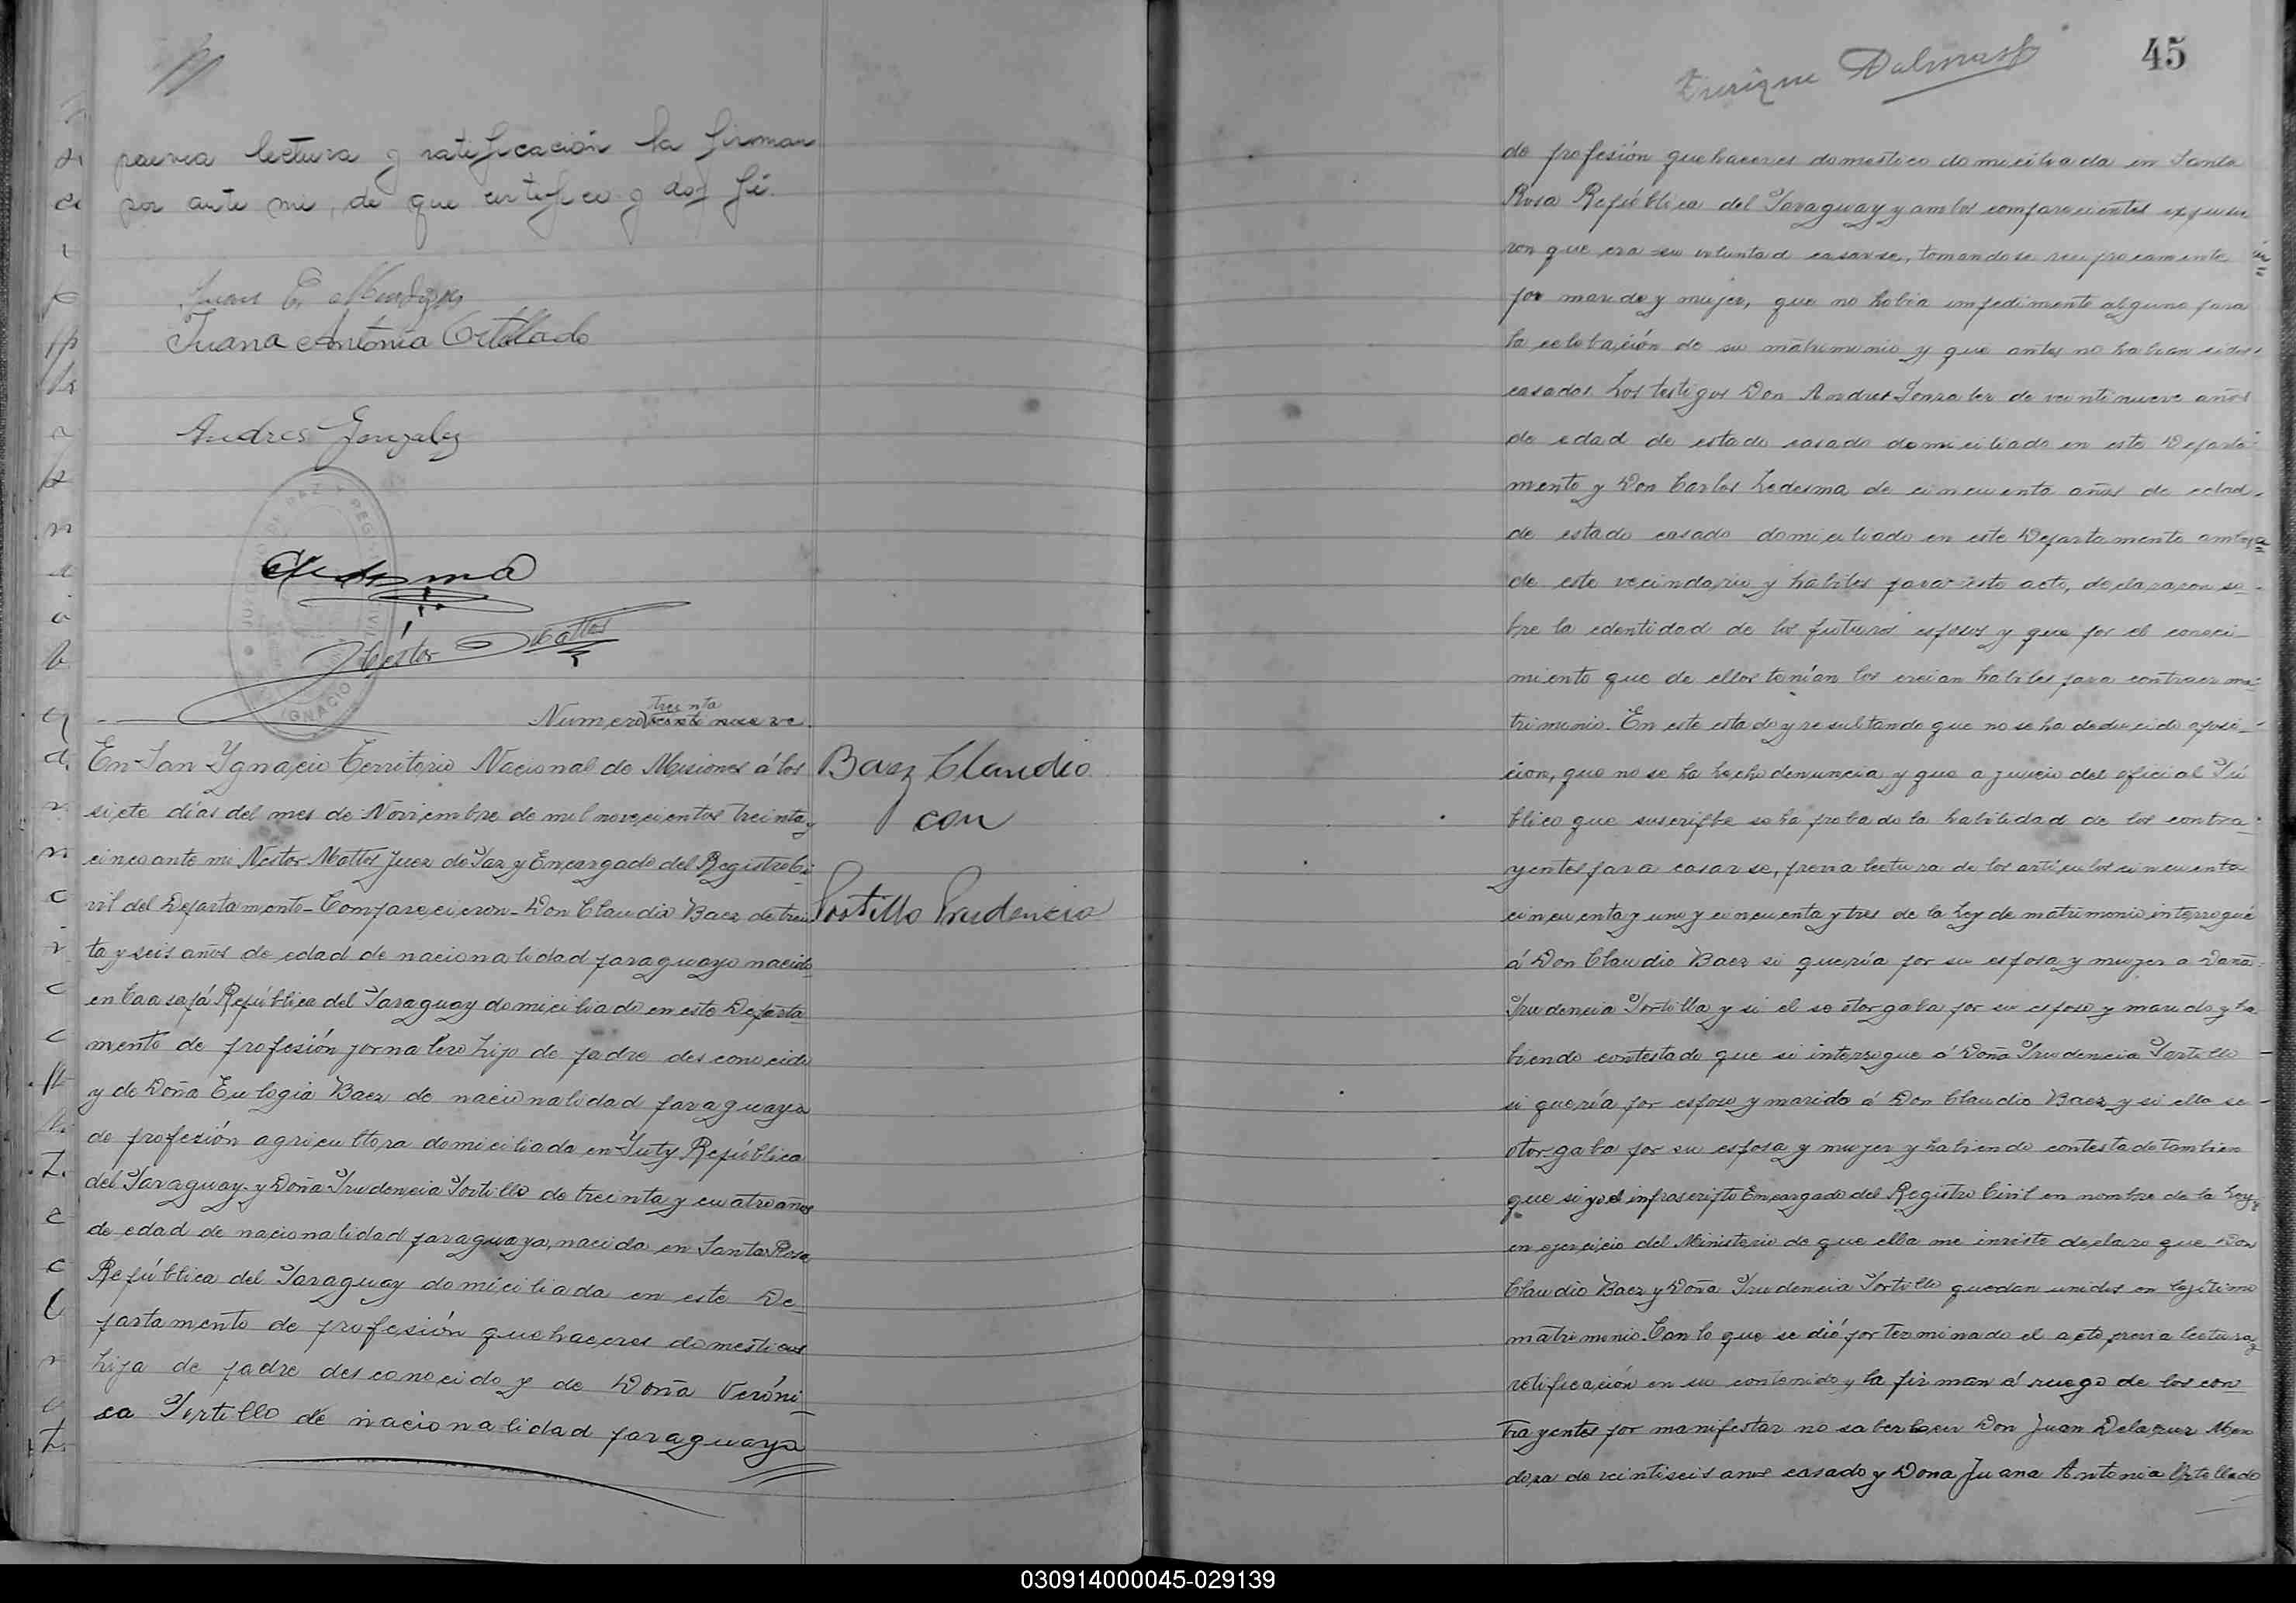 previa lectura y ratificación la firman
por ante mi, de que certifico y doy fé.
Juan E. Mendoza
Juana Antonia Ortellado
Andres Gonzalez
CLedesma
Néstor Mattos
treinta
Numero veinte nueve
En San Ygnacio Territorio Nacional de Misiones á los
siete días del mes de Noviembre de mil novecientos treinta y
cinco ante mi Nestor Mattos Juez de Paz y Encargado del Registro Ci-
vil del Departamento - Comparecieron - Don Claudio Baez de trein
ta y seis años de edad de nacionalidad paraguayo nacido
en Caasapá República del Paraguay domiciliado en este Departa-
mento de profesión jornalero hijo de padre desconocido
y de Doña Eulogia Baez de nacionalidad paraguaya
de profesión agricultora domiciliada en Yuty República
del Paraguay y Doña Prudencia Portillo de treinta y cuatro años
de edad de nacionalidad paraguaya, nacida en Santa Rosa
República del Paraguay domiciliada en este De-
partamento de profesión quehaceres domesticos
hija de padre desconocido y de Doña Veróni-
ca Portillo de nacionalidad paraguaya
Baez Claudio
con
Portillo Prudencia
Enrique Dalmas
45
de profesión quehaceres domestico domiciliada en Santa
Rosa República del Paraguay y ambos comparecientes expusie
ron que era su voluntad casarse, tomandose reciprocamente
por marido y mujer, que no habia impedimento alguno para
la celebación de su matrimonio y que antes no habian sidos
casados. Los testigos Don Andres Gonzalez de veintinueve años
de edad de estado casado domiciliado en este Departa-
mento y Don Carlos Ledesma de cincuenta años de edad
de estado casado domiciliado en este Departamento ambos
de este vecindario y habiles para este acto, declararon so-
bre la edentidad de los futuros esposos y que por el conoci-
miento que de ellos tenían los creian habiles para contraer ma-
trimonio. En este estado y resultando que no se ha deducido oposi-
cion, que no se ha hecho denuncia y que a juicio del oficial Pú
blico que suscripbe se ha probado la habilidad de los contra-
yentes para casarse, previa lectura de los artículos cincuenta
cincuenta y uno y cincuenta y tres de la Ley de matrimonio interrogué
á Don Claudio Baez si quería por su esposa y mujer a Doña
Prudencia Portilla y si el se otorgaba por su esposo y marido y ha
biendo contestado que si interrogue á Doña Prudencia Portillo
si quería por esposo y marido á Don Claudio Baez y si ella se
otorgaba por su esposa y mujer y habiendo contestado tambien
que si yo el infrascripto Encargado del Registro Civil en nombre de la Ley y
en ejercicio del Ministerio de que ella me inviste declaro que Don
Claudio Baez y Doña Prudencia Portillo quedan unidos en legítimo
matrimonio. Con lo que se dió por terminado el acto previa lectura y
ratificación en su contenido y la firman á ruego de los con
trayentes por manifestar no saber hacer Don Juan Men
doza de veintiseis anos casado y Dona Juana Antonia Ortellado
030914000045-029139